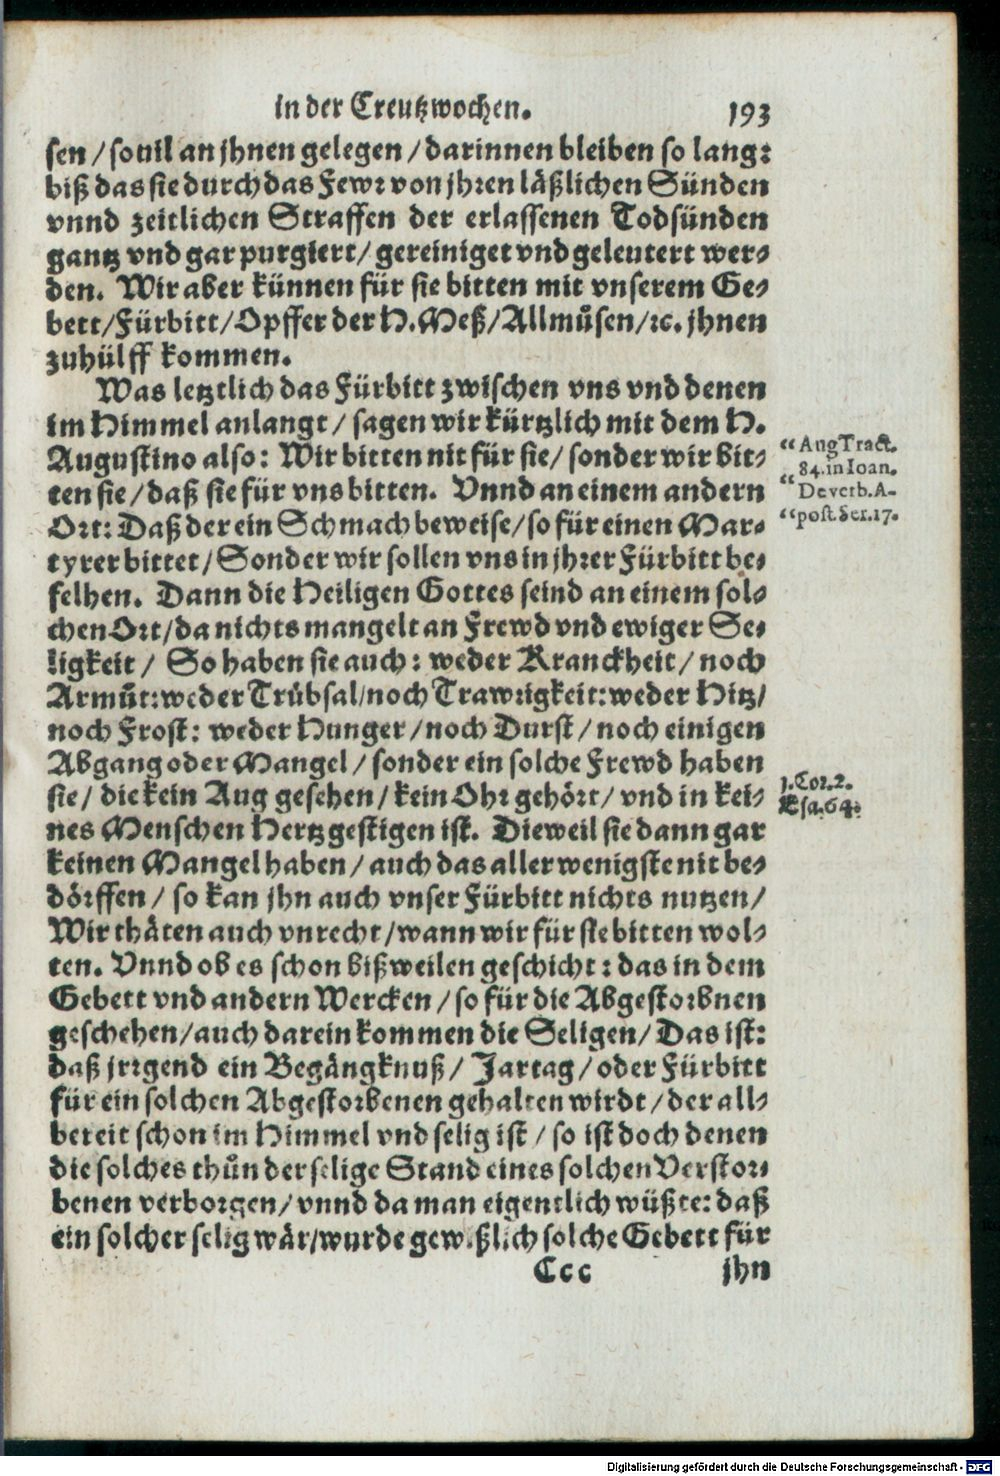 in der Creutzwochen. 193
sen / souil an jhnen gelegen / darinnen bleiben so lang:
biß das sie durch das Fewr von jhren läßlichen Sünden
vnnd zeitlichen Straffen der erlassenen Todsünden
gantz vnd gar purgiert / gereiniget vnd geleutert wer-
den. Wir aber künnen für sie bitten mit vnserem Ge-
bett / Fürbitt / Opffer der H. Meß / Allmůsen / ꝛc. jhnen
zuhülff kommen.
Was letztlich das Fürbitt zwischen vns vnd denen
im Himmel anlangt / sagen wir kürtzlich mit dem H.
Augustino also: Wir bitten nit für sie / sonder wir bit-
ten sie / daß sie für vns bitten. Vnnd an einem andern
Ort: Daß der ein Schmach beweise / so für einen Mar-
tyrer bittet / Sonder wir sollen vns in jhrer Fürbitt be-
felhen. Dann die Heiligen Gottes seind an einem sol-
chen Ort / da nichts mangelt an Frewd vnd ewiger Se-
ligkeit / So haben sie auch: weder Kranckheit / noch
Armůt: weder Trübsal / noch Trawrigkeit: weder Hitz /
noch Frost: weder Hunger / noch Durst / noch einigen
Abgang oder Mangel / sonder ein solche Frewd haben
sie / die kein Aug gesehen / kein Ohr gehört / vnd in kei-
nes Menschen Hertz gestigen ist. Dieweil sie dann gar
keinen Mangel haben / auch das aller wenigste nit be-
dörffen / so kan jhn auch vnser Fürbitt nichts nutzen /
Wir thäten auch vnrecht / wann wir für sie bitten wol-
ten. Vnnd ob es schon bißweilen geschicht: das in dem
Gebett vnd andern Wercken / so für die Abgestorbnen
geschehen / auch darein kommen die Seligen / Das ist:
daß jrrgend ein Begängknuß / Jartag / oder Fürbitt
für ein solchen Abgestorbenen gehalten wirdt / der all-
bereit schon im Himmel vnd selig ist / so ist doch denen
die solches thůn der selige Stand eines solchen Verstor-
benen verborgen / vnnd da man eigentlich wüßte: daß
ein solcher selig wär / wurde gewißlich solche Gebett für
Ccc jhn
“ Aug Tract.
84. in Ioan.
“ De verb. A-
“ post. Ser. 17.
1. Cor. 2.
Esa. 64.
Digitalisierung gefördert durch die Deutsche Forschungsgemeinschaft - DFG